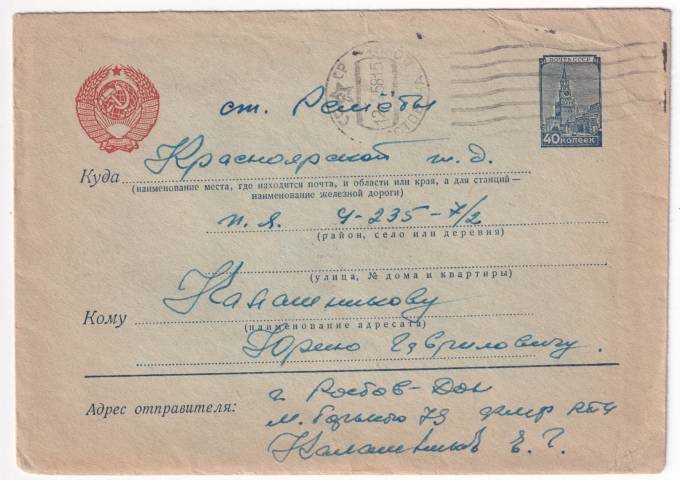 ПОЧТА СССР
40 КОПЕЕК
ст. Решёты
Красноярской ж.д.
Куда
(наименование места, где находится почта, и области или края, а для станций —
наименование железной дороги)
п.я. Ч-235-7/2
(район, село или деревня)
(улица, № дома и квартиры)
Калашникову
Кому
(наименование адресата)
Юрию Гавриловичу.
Адрес отправителя:
г. Ростов-Дон
М. Горького 79
Калашников Е. Г.